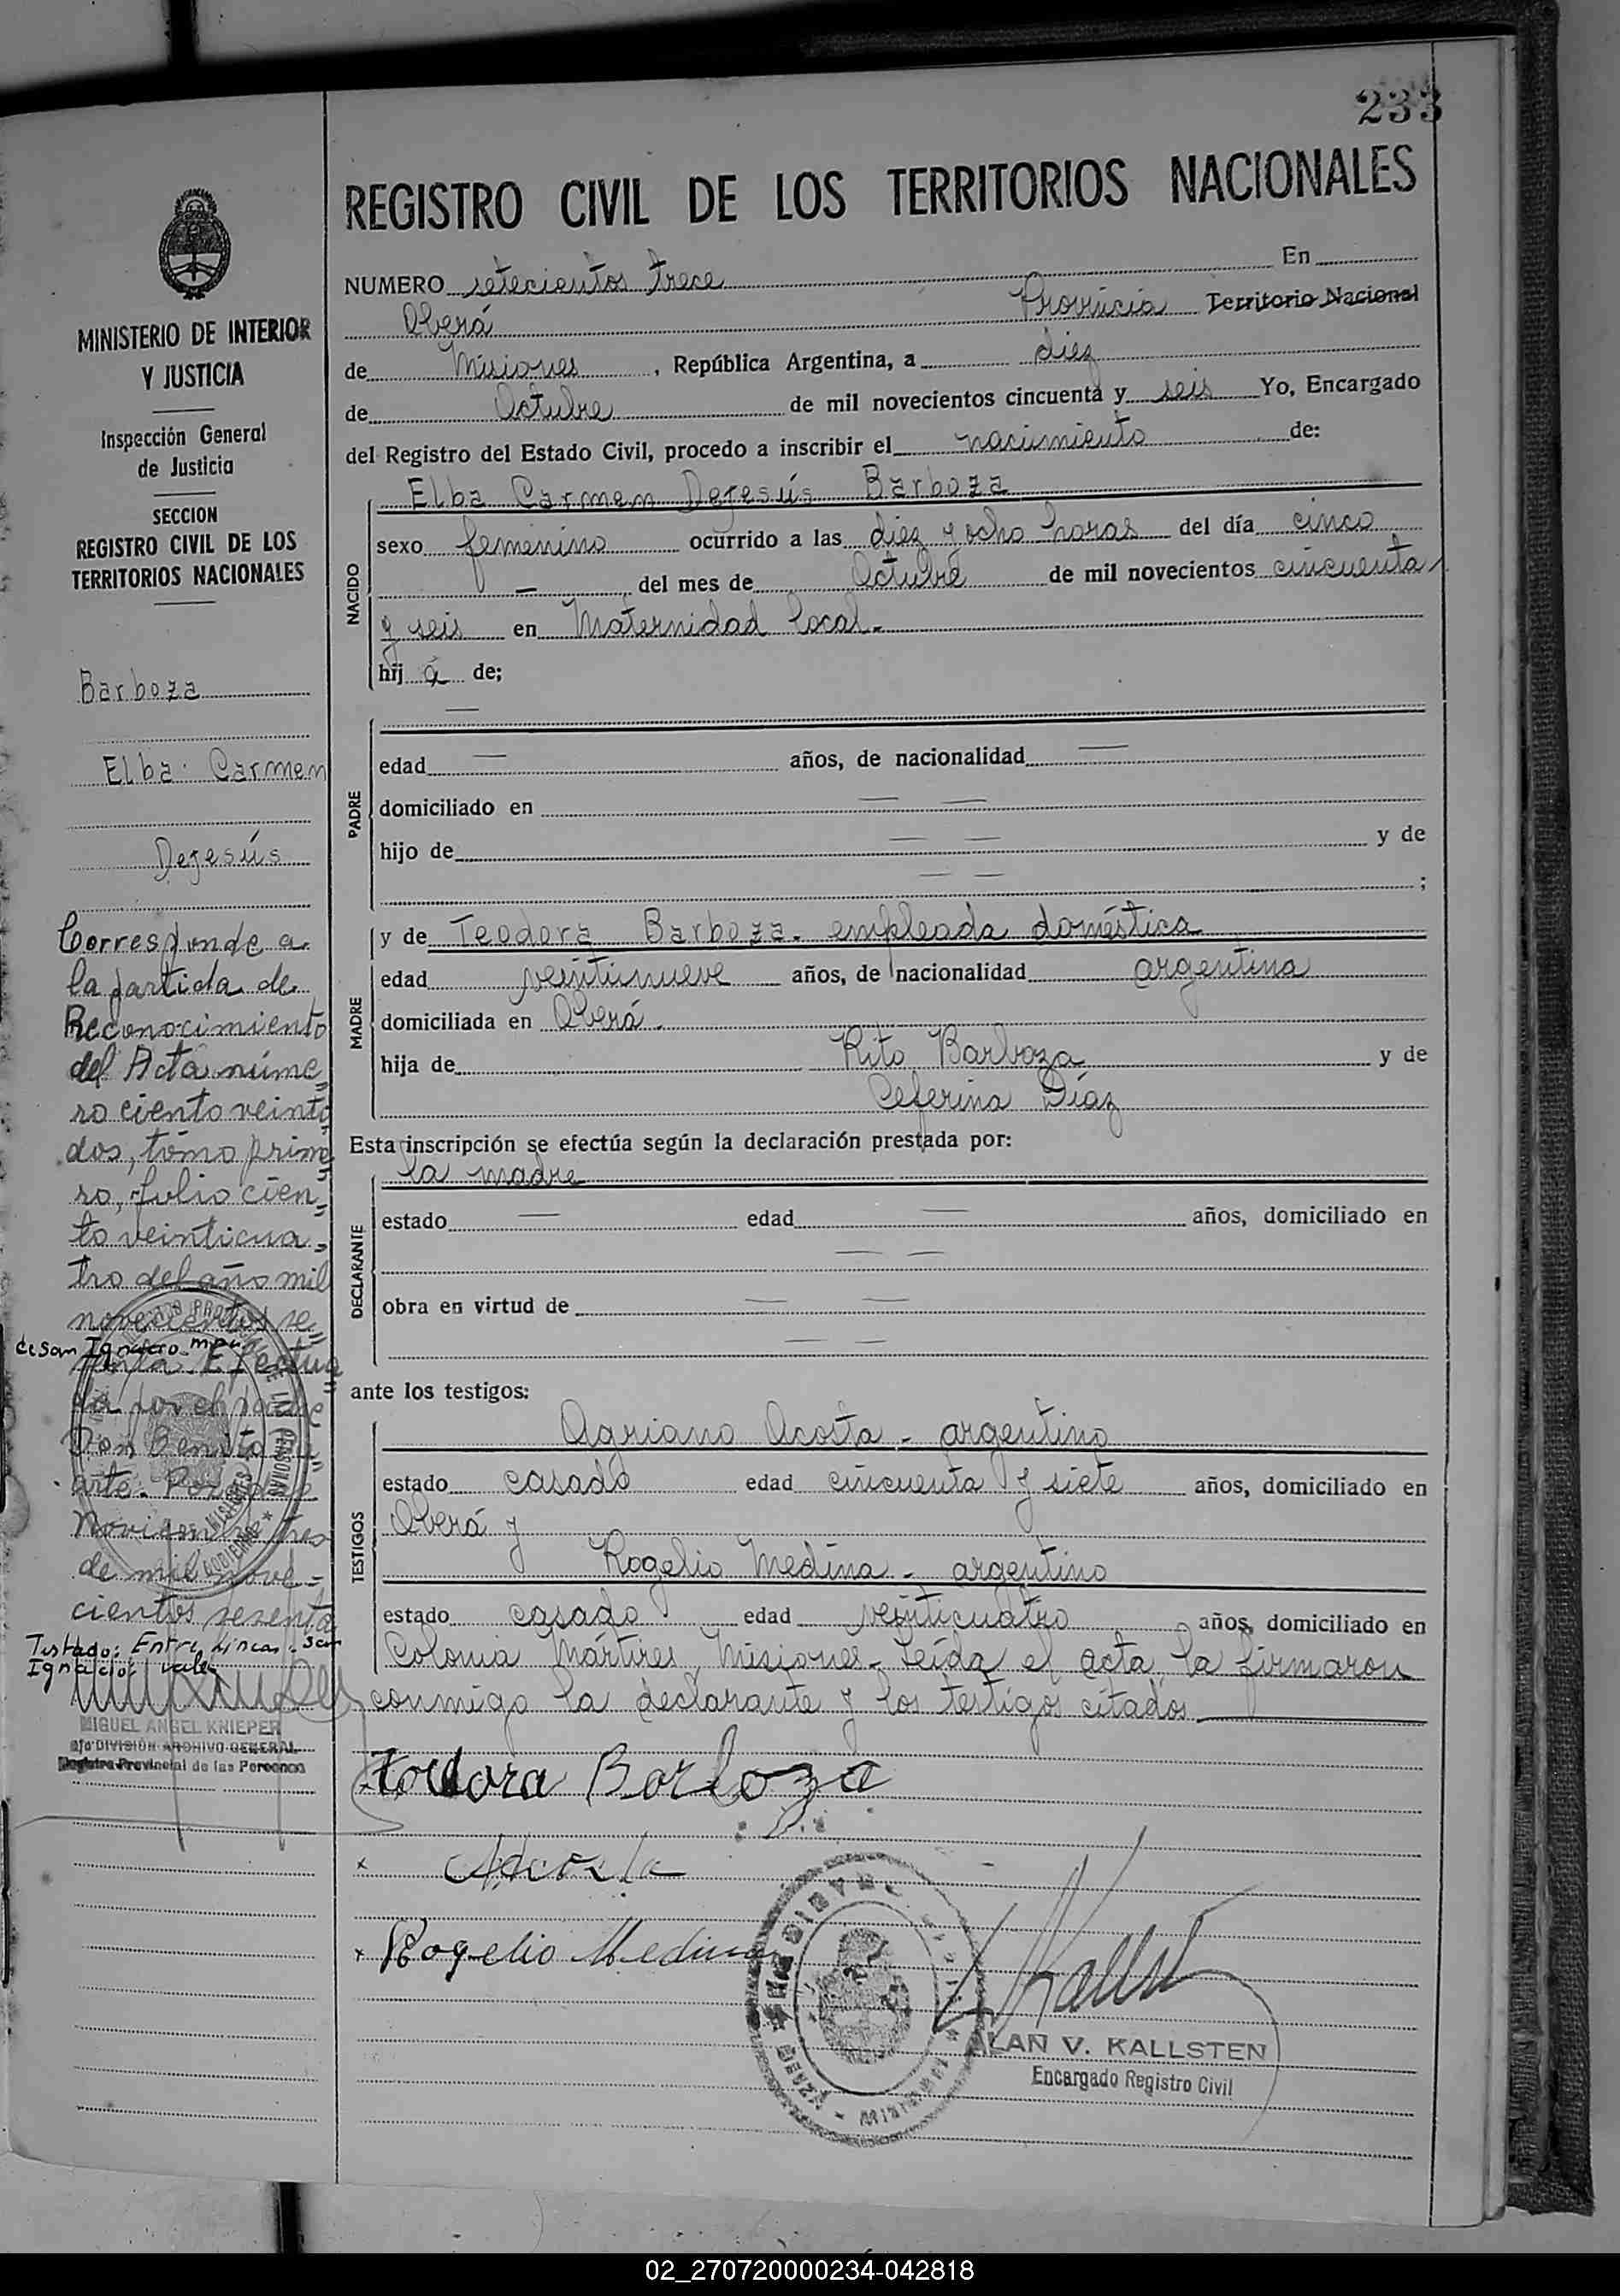 233
REGISTRO CIVIL DE LOS TERRITORIOS NACIONALES
NUMERO setecientos trece En
Oberá Provincia Territorio Nacional
de Misiones, República Argentina, a diez
de Octubre de mil novecientos cincuenta y seis Yo, Encargado
del Registro del Estado Civil, procedo a inscribir el nacimiento de:
NACIDO
Elba Carmen Dejesús Barboza
sexo femenino ocurrido a las diez y ocho horas del día cinco
— del mes de Octubre de mil novecientos cincuenta
y seis en Maternidad local.-
hij a de;
PADRE
—
edad — años, de nacionalidad —
domiciliado en — —
hijo de — — y de
— — ;
MADRE
y de Teodora Barboza. empleada doméstica
edad veintinueve años, de nacionalidad argentina
domiciliada en Oberá.
hija de Rito Barboza y de
Ceferina Díaz
Esta inscripción se efectúa según la declaración prestada por:
DECLARANTE
la madre
estado — edad — años, domiciliado en
— —
obra en virtud de — —
— —
ante los testigos:
TESTIGOS
Agriano Acosta - argentino
estado casado edad cincuenta y siete años, domiciliado en
Oberá y
Rogelio Medina - argentino
estado casado edad veinticuatro años, domiciliado en
Colonia Mártires, Misiones.- Leída el acta, la firmaron
conmigo la declarante y los testigos citados
Teodora Barboza
x Acosta
x Rogelio Medina
Kallsten
ALAN V. KALLSTEN
Encargado Registro Civil
MINISTERIO DE INTERIOR
Y JUSTICIA
Inspección General
de Justicia
SECCION
REGISTRO CIVIL DE LOS
TERRITORIOS NACIONALES
Barboza
Elba Carmen
Dejesús
Corresponde a
la partida de
Reconocimiento
del Acta núme=
ro ciento veinti
dos, tomo prime
ro, folio cien=
to veinticua=
tro del año mil
novecientos se=
de San Ignacio
senta. Efectua
da por el padre
Don Benito
arte. Posadas
de mil nove=
cientos sesenta
Testado: Entre lineas: San
Ignacio: vale
MIGUEL ANGEL KNIEPER
DIVISIÓN ARCHIVO GENERAL
Registro Provincial de las Personas
02_270720000234-042818